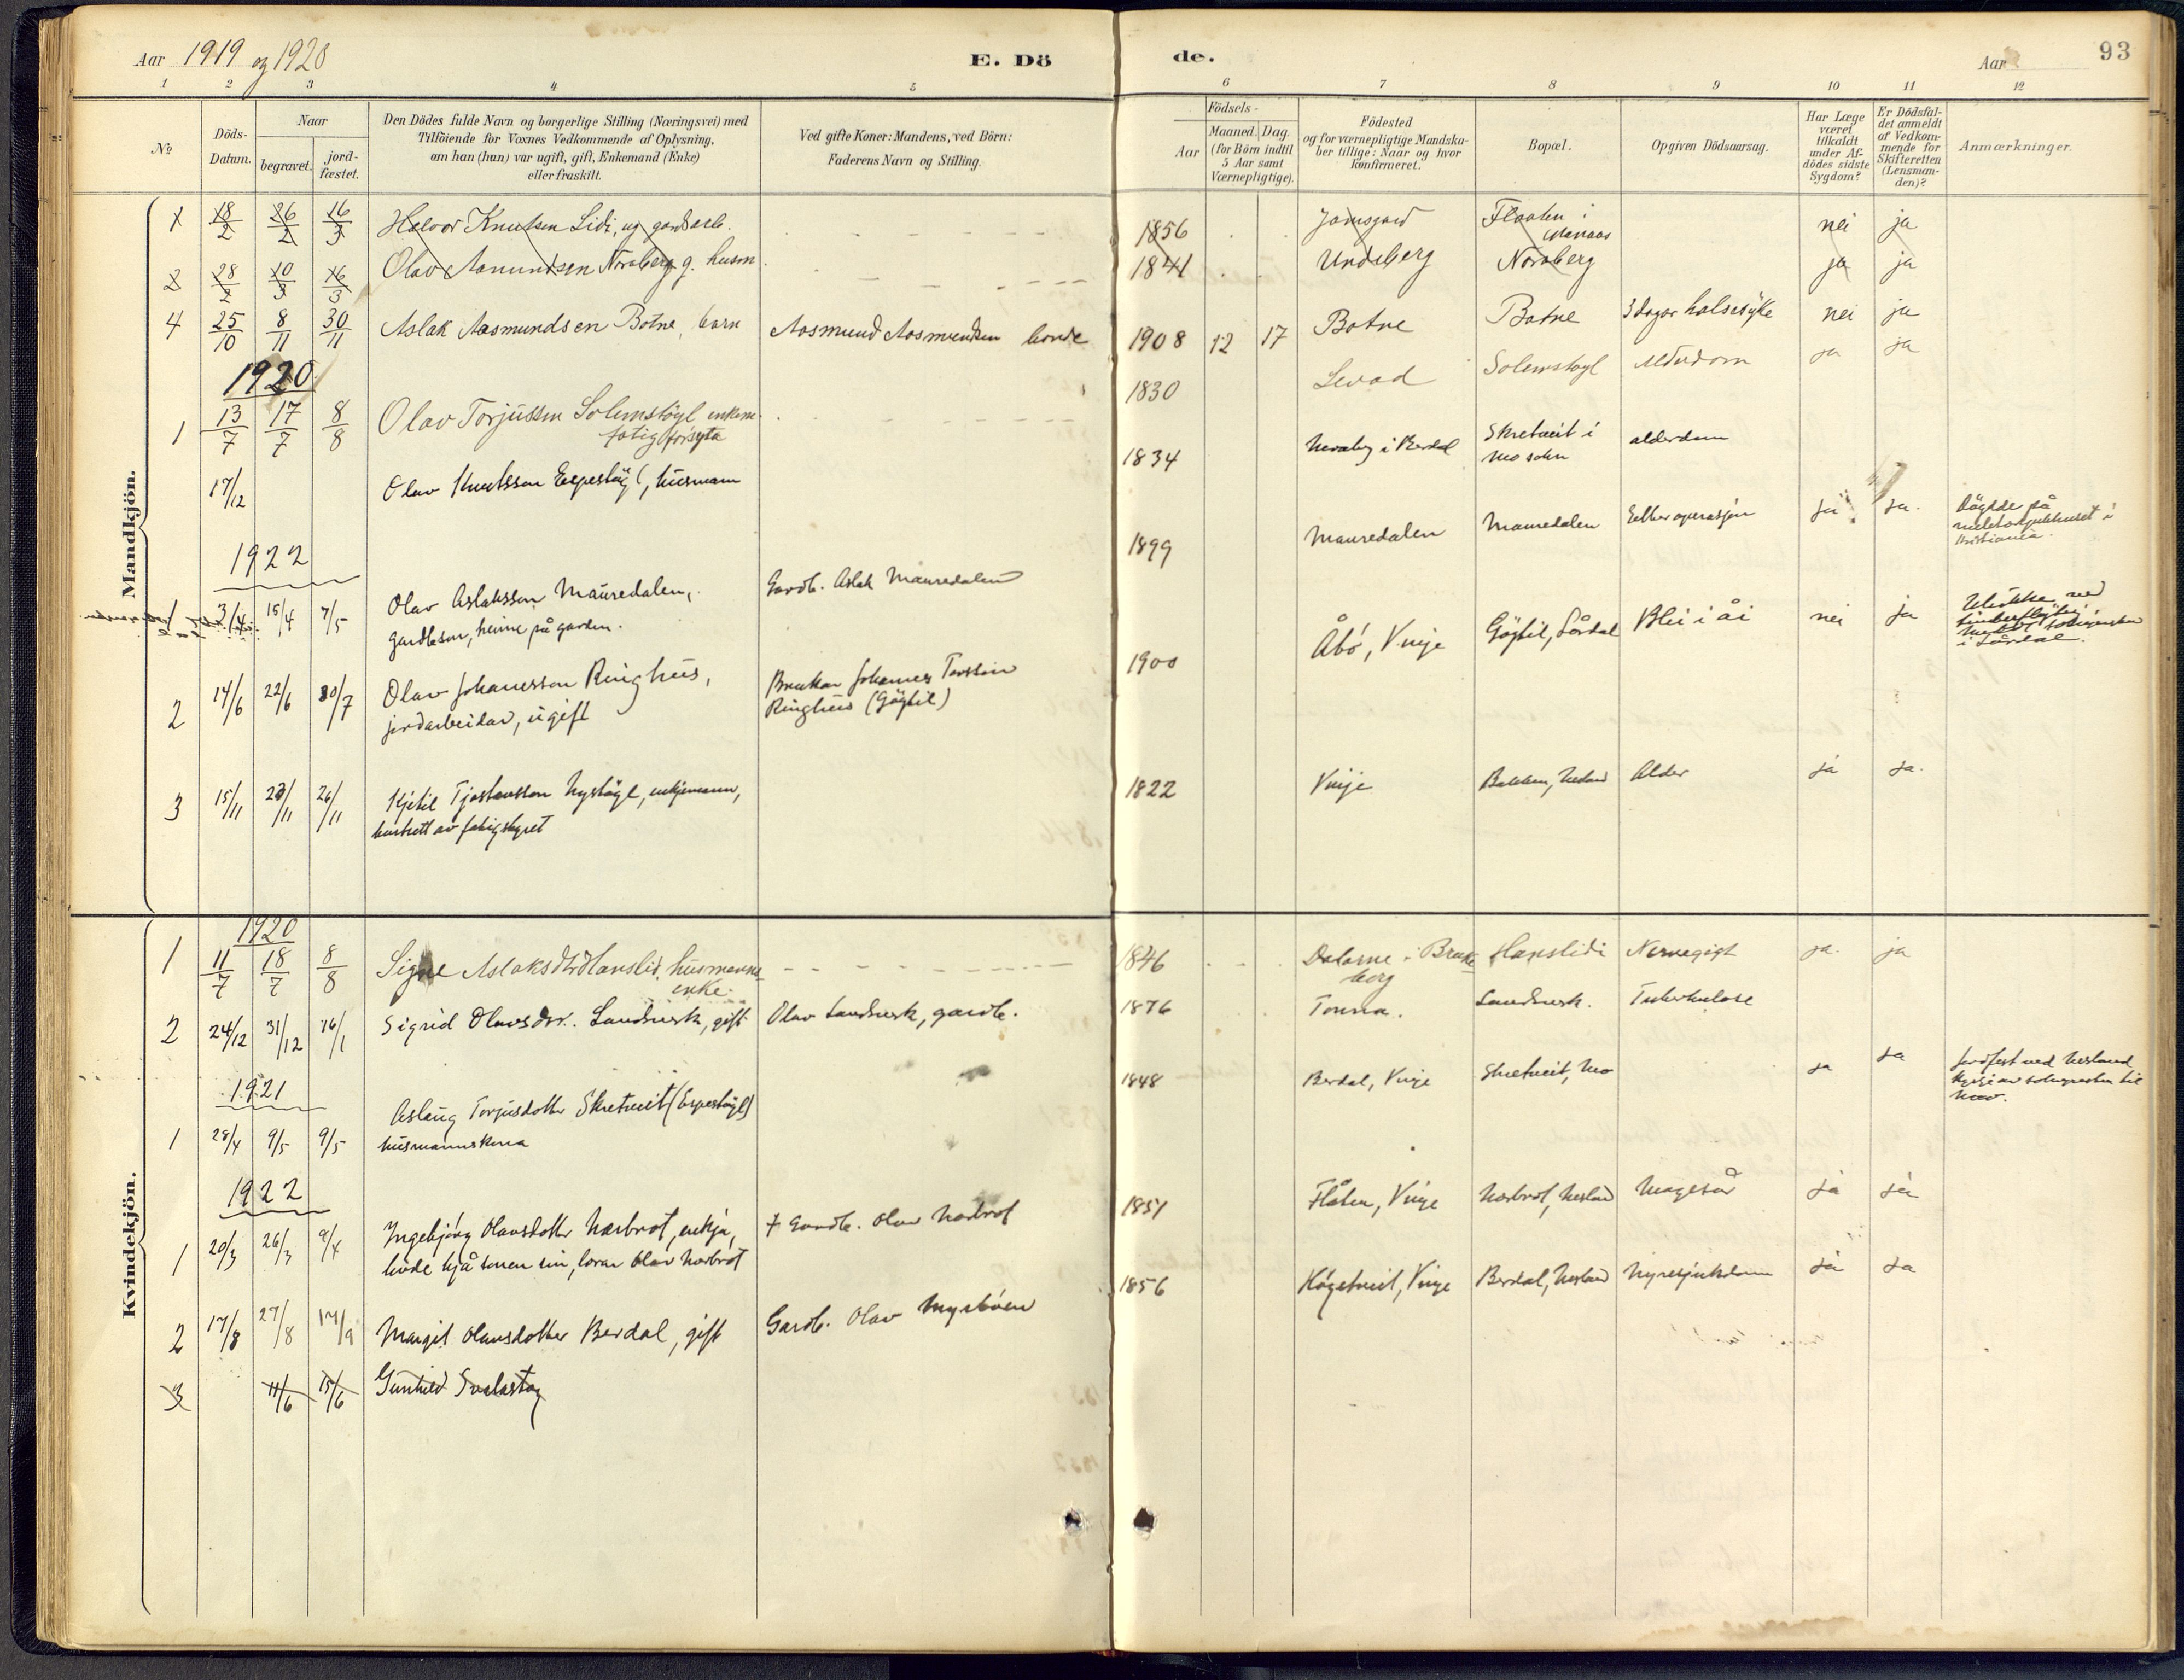 Aar 1919 og 1920
E. Dö
de.
Aar
93
1 2 3 4 5 6 7 8 9 10 11 12
No
Döds-
Datum.
Naar
begravet.
jord-
fæstet.
Den Dödes fulde Navn og borgerlige Stilling (Næringsvei) med
Tilföiende for Voxnes Vedkommende af Oplysning,
om han (hun) var ugift, gift, Enkemand (Enke)
eller fraskilt.
Ved gifte Koner: Mandens, ved Börn:
Faderens Navn og Stilling.
Födsels-
Aar
Maaned. Dag.
(for Börn indtil
5 Aar samt
Værnepligtige).
Födested
og for værnepligtige Mandska-
ber tillige: Naar og hvor
konfirmeret.
Bopæl.
Opgiven Dödsaarsag.
Har Læge
været
tilkaldt
under Af-
dödes sidste
Sygdom?
Er Dödsfal-
det anmeldt
af Vedkom-
mende for
Skifteretten
(Lensman-
den)?
Anmærkninger.
Mandkjön.
1 18/2 26/2 16/3 Halvor Knutsen Lidi, ug gardarb. 1856 Flaaten i nei ja
2 28/2 10/3 16/3 Olav Aamundsen Noraberg g. husm. 1841 Undeberg Noraberg ja ja
4 25/10 8/11 30/11 Aslak Aasmundsen Botne, barn Aasmund Aasmundsen bonde 1908 12 17 Botne Botne 3 dagar halsesyke nei ja
1920
1 13/7 17/7 8/8 Olav Torjussen Solemstögl enkem. 1830 Levad Solemstogl Alderdom ja ja
fatigforsyta
17/12 Olav Knutsson Espestöyl, husmann 1834 i Berdal Skretveit i alderdom
Mo sokn
1922
1 3/4 15/4 7/5 Olav Aslaksson Mauredalen, Gardb. Aslak Mauredalen 1899 Mauredalen Mauredalen Etter operasjon ja ja. Döydde på
gardbson, heime på garden.
i
Kristiania.
2 14/6 22/6 30/7 Olav Johansson Ringhus, Brukar Johannes Torsson 1900 Åbö, Vinje Göytil, Lårdal Blei i åi nei ja
jordarbeidar, ugift Ringhus (Göytil)
i Lårdal.
3 15/11 23/11 26/11 Kjetil Tjostavsson Nystöyl, enkjemann, 1822 Vinje Bakken, Nesland Alder ja ja.
av fatigstyret
Kvindekjön.
1920
1 11/7 18/7 8/8 Signe Aslaksdtr Hanslid, husmanns 1846 Dalarne i Brunke Hanslidi Nervegigt ja. ja
enke. berg
2 24/12 31/12 16/1 Sigrid Olavsdtr. Landsverk, gift Olav Landsverk, gardb. 1876 Tonna. Landsverk. Tuberkulose
1921
1 28/4 9/5 9/5 Aslaug Torjusdotter Skretveit (Espestöyl) 1848 Berdal, Vinje Skretveit, Mo ja ja Jordfest ved Nesland
husmannskona kyrje av soknepresten til
Mo.
1922
1 20/3 26/3 9/4 Ingebjörg Olavsdotter Norbrot, enkja, † Gardb. Olav Norbrot 1851 Flåten, Vinje Norbrot, Nesland Magesår ja ja
budde hjå sonen sin, lærar Olav Norbrot
2 17/8 27/8 17/9 Margit Olavsdotter Berdal, gift Gardb. Olav Myrböen 1856 Högetveit, Vinje Berdal, Nesland Nyresjukdom ja ja
3 11/6 15/6 Gunhild Svalastog